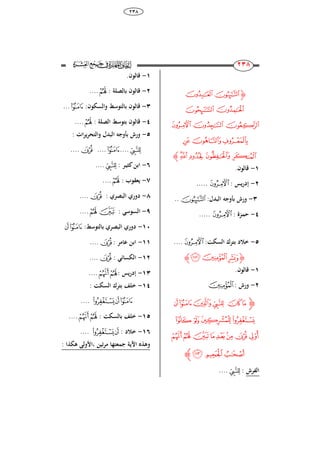 ٢٣٨
٢٣٨
﴿ ٱلتَّٰٓئِبُونَ ٱلْعَٰبِدُونَ
ٱلْحَٰمِدُونَ ٱلسَّٰٓئِحُونَ
ٱلرَّٰكِعُونَ ٱلسَّٰجِدُونَ ٱلْءَامِرُونَ
بِٱلْمَعْرُوفِ وَٱلنَّاهُونَ عَنِ
ٱلْمُنكَرِ وَٱلْحَٰفِظُونَ لِحُدُودِ ٱللَّهِ ﴾
١- قالون.
٢- إدريس : ٱلْءَامِرُونَ .....
٣- ورش بأوجه البدل: ٱلتَّٰٓئِبُونَ ..
٤- حمزة : ٱلْءَامِرُونَ .....
٥- خلاد بترك السكت: ٱلْءَامِرُونَ ....
﴿ وَبَشِّرِ ٱلْمُؤْمِنِينَ ١١٢ ﴾
١- قالون.
٢- ورش : ٱلْمُومِنِينَ
﴿ مَا كَانَ لِلنَّبِيِّ وَٱلَّذِينَ ءَامَنُوٓا۟ أَن
يَسْتَغْفِرُوا۟ لِلْمُشْرِكِينَ وَلَوْ كَانُوٓا۟
أُو۟لِى قُرْبَىٰ مِنۢ بَعْدِ مَا تَبَيَّنَ لَهُمْ أَنَّهُمْ
أَصْحَٰبُ ٱلْجَحِيمِ ١١٣ ﴾
الفرش : لِلنَّبِيِّ ....
١- قالون.
٢- قالون بالصلة : لَهُمْ ....
٣- قالون بالتوسط والسكون: ءَامَنُوٓا۟ ...
٤- قالون بتوسط الصلة : لَهُمْ ....
٥- ورش بأوجه البدل والتحريرات :
لِلنَّبِيِّ ... ءَامَنُوٓا۟ ... قُرْبَىٰ ....
٦- ابن كثير : لِلنَّبِيِّ ....
٧- يعقوب : لَهُمْ ....
٨- دوري البصري : قُرْبَىٰ ....
٩- السوسي : تَبَيَّنَ لَهُمْ ....
١٠- دوري البصري بالتوسط: ءَامَنُوٓا۟ أَن
١١- ابن عامر : قُرْبَىٰ ....
١٢- الكسائي : قُرْبَىٰ ....
١٣- إدريس : لَهُمْ أَنَّهُمْ ....
١٤- خلف بترك السكت :
ءَامَنُوٓا۟ أَن يَسْتَغْفِرُوا۟ ....
١٥- خلف بالسكت : لَهُمْ أَنَّهُمْ ....
١٦- خلاد : أَن يَسْتَغْفِرُوا۟ ....
وهذه الآية جمعتها مرتين ،الأولى هكذا :